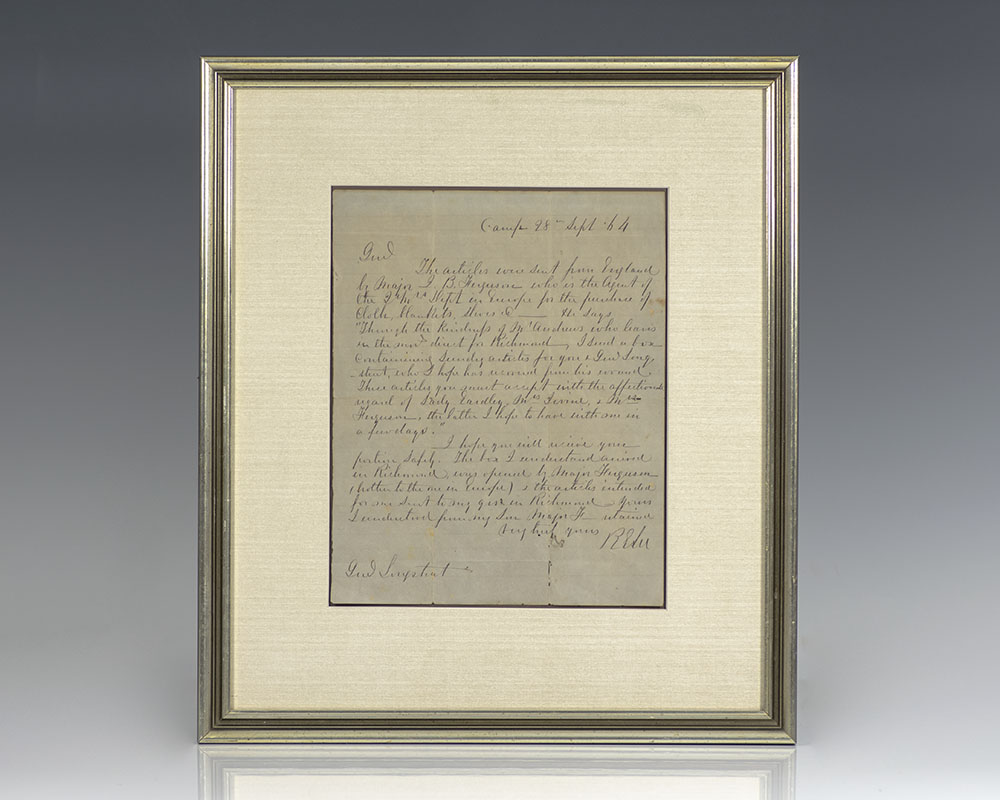 Camp 28th Sept '64
Genl
The articles were sent from England
by Major J. B. Ferguson who is the Agent of
the Q Mrs Dept in Europe for the purchase of
Cloth, blankets, shoes & He says
"Through the kindness of Mr Andrews who leaves
in the morng direct for Richmond, I send a box
Containing Sundry articles for you & Genl Long
-street, who I hope has recovered from his wound
These articles you must accept with the affectionate
regard of Lady Eardley, Mrs Irvine, & Mrs
Ferguson, the latter I hope to have with me in
a few days."
I hope you will receive your
portion safely. The box I understand arrived
in Richmond, was opened by Major Ferguson
(brother to the one in Europe) & the articles intended
for me sent to my in Richmond yours
I understand from my Son Major F retained
Very truly yours
R E Lee
Genl Longstreet